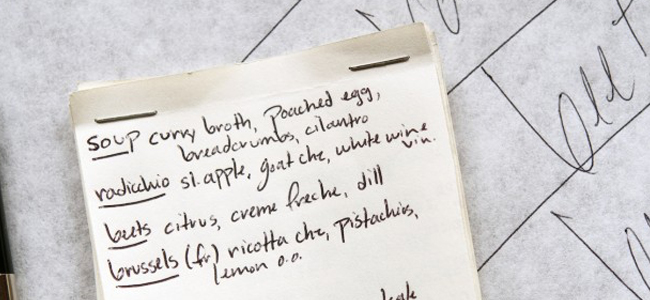 soup curry broth, poached egg,
breadcrumbs, cilantro
radicchio sl. apple, goat che, white wine
vin.
beets citrus, creme freche, dill
brussels (fr) ricotta che, pistachios,
lemon o.o.
Old